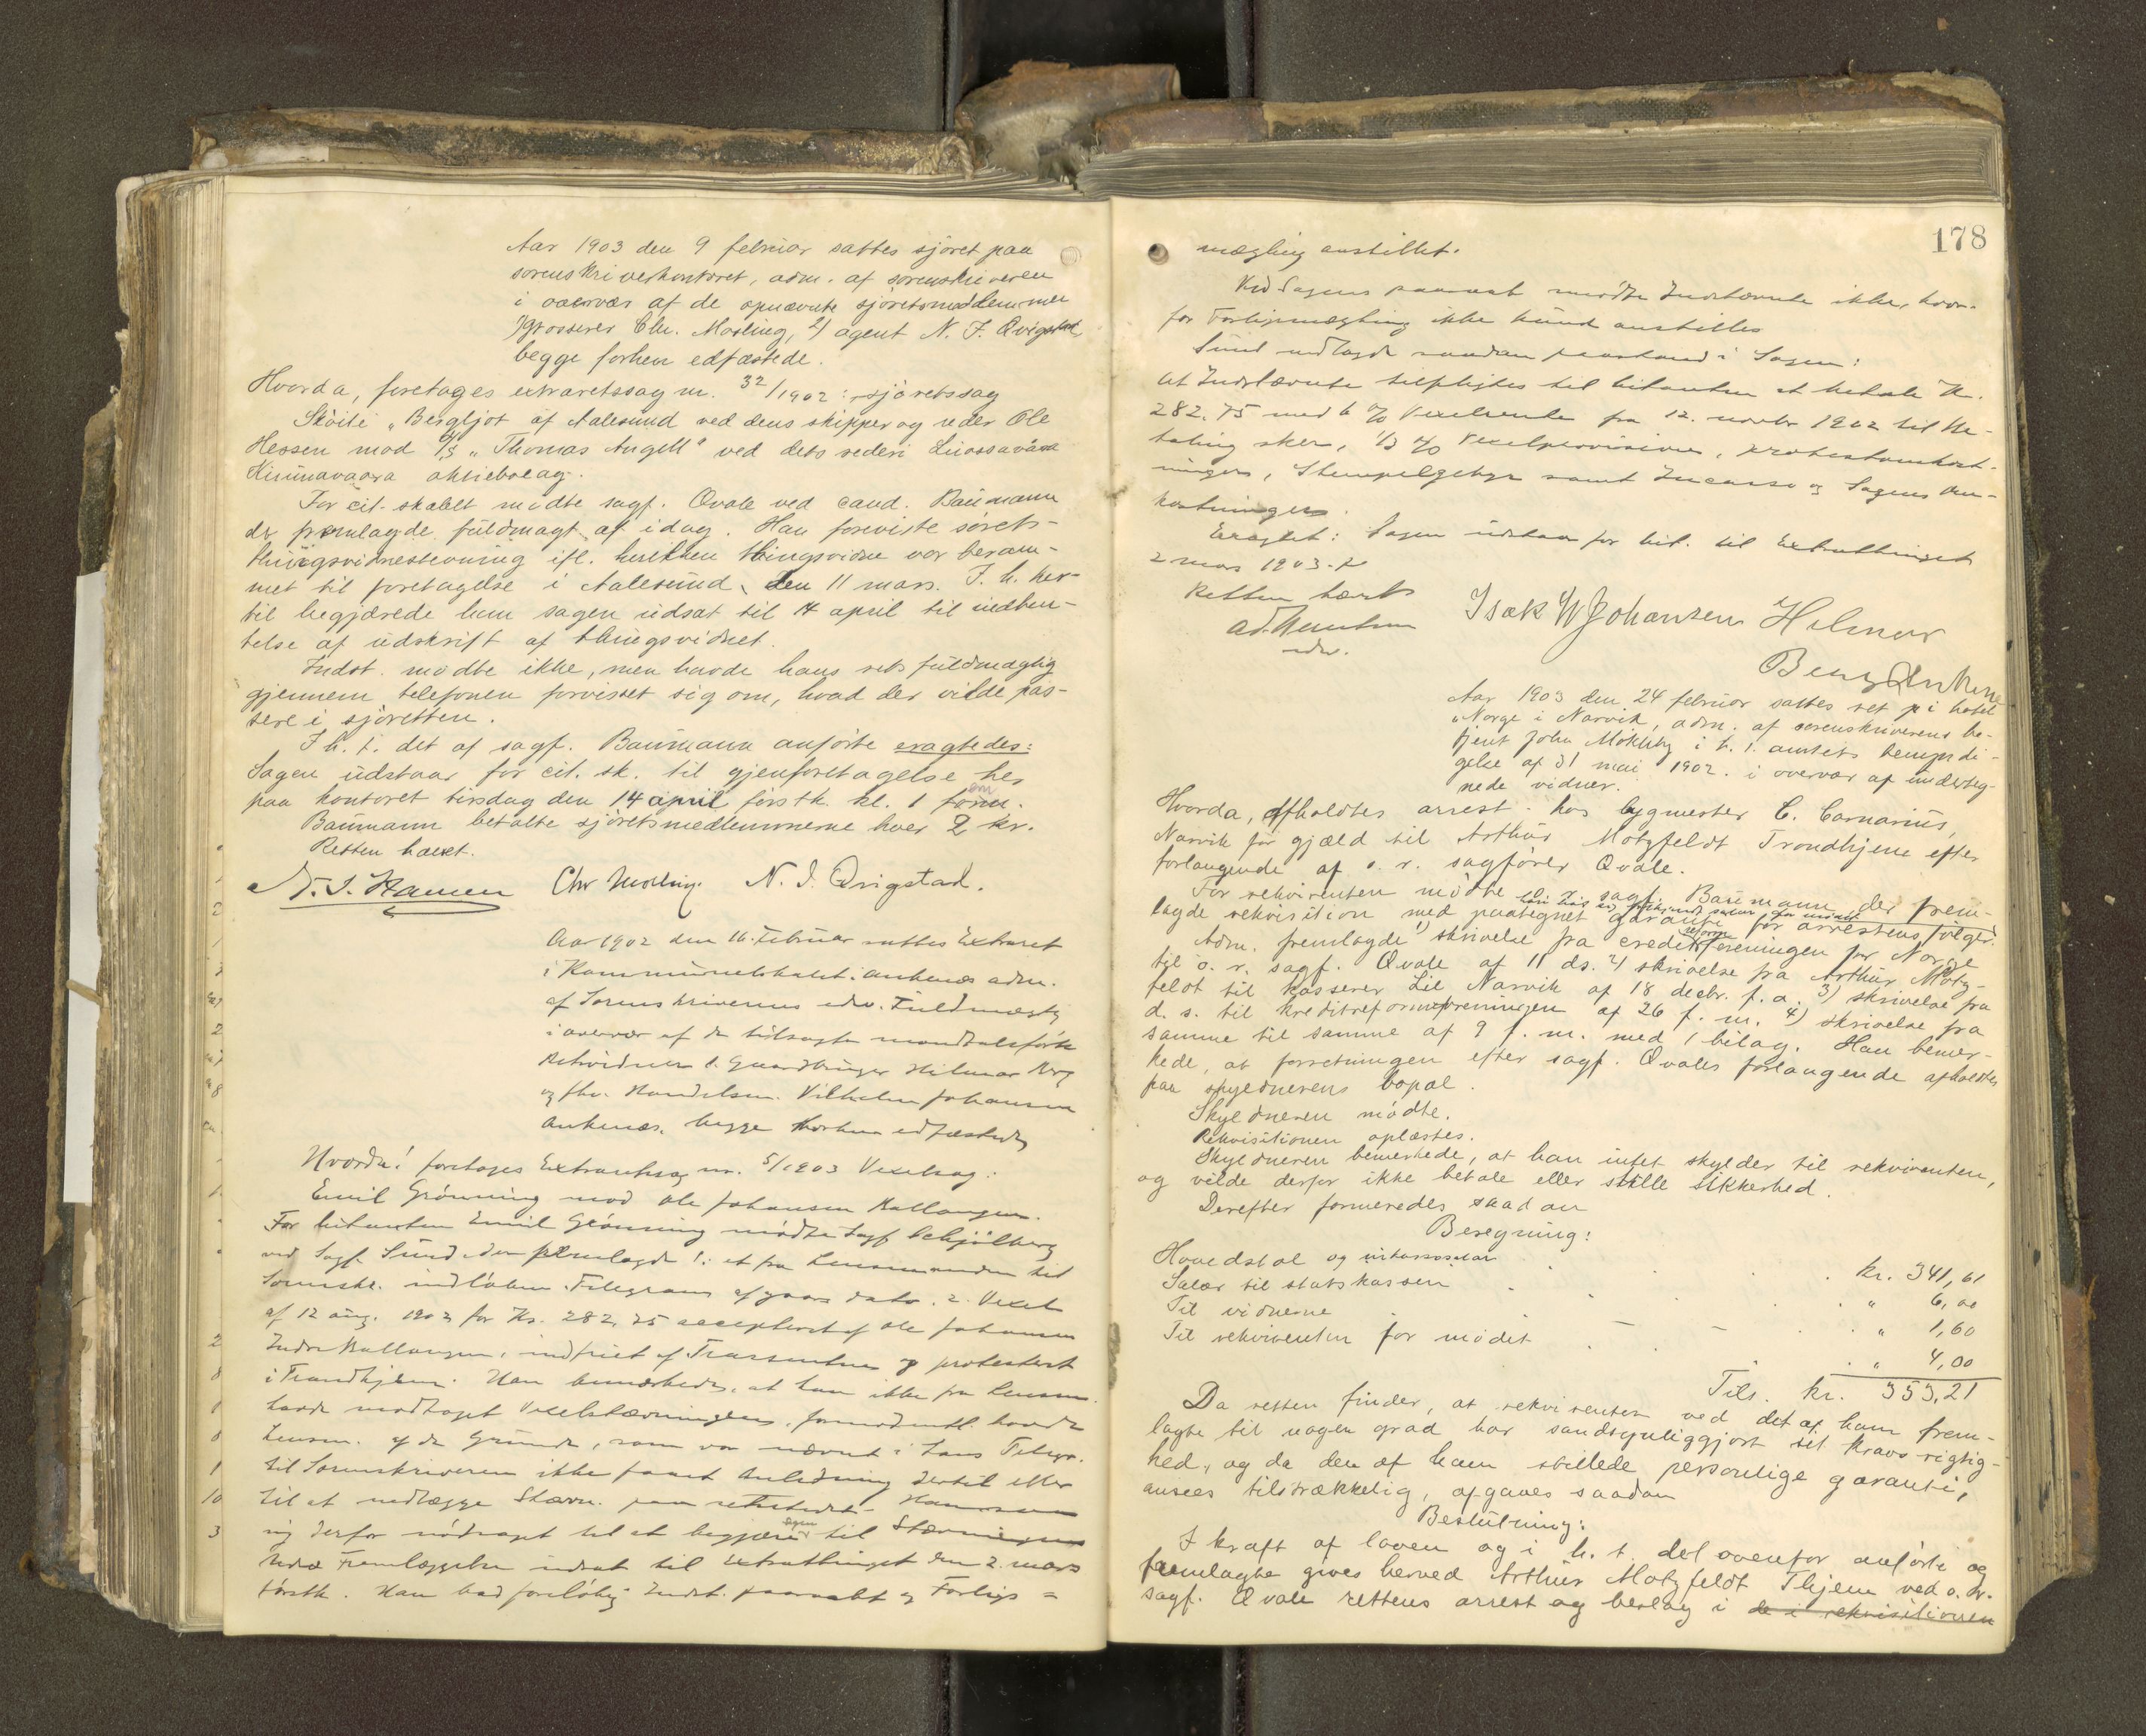 Aar 1903 den 9 februar sattes sjøret paa
sorenskriverkontoret, adm. af sorenskriveren
i overvær af de opnævnte sjøretsmedlemmer
1) grosserer Chr. Mosling, 2) agent N. J. Qvigstad,
begge forhen edfæstede.
Hvorda, foretages extraretssag nr. 32/1902: sjøretssag
Skøite „Bergljot af Aalesund ved dens skipper og reder Ole
Hessen mod D/S „Thomas Angell“ ved dets rederi Luossavaara
Kirunavaara aktiebolag.
For cit. skabet mødte sagf. Qvale ved cand. Baumann
der fremlagde fuldmagt af idag. Han foreviste sørets-
thingsvidnestevning ifl. hvilken thingsvidne var beram-
met til foretagelse i Aalesund, den 11 mars. I h. her-
til begjærede han sagen udsat til 14 april til indhen-
telse af udskrift af thingsvidnet.
Indst. mødte ikke, men havde hans rets fuldmægtig
gjennem telefonen forvisset sig om, hvad der vilde pas-
sere i sjøretten.
I h. t. det af sagf. Baumann anførte eragtedes:
Sagen udstaar for cit. sk. til gjenforetagelse her
paa kontoret tirsdag den 14 april førstk. kl. 1 form. em
Baumann betalte sjøretsmedlemmerne hver 2 kr.
Retten hævet.
Chr Mosling. N. J. Qvigstad.
Aar 1902 den 16. Februar sattes Extraret
i Kommunelokalet i Ankenæs adm.
af Sorenskriverens edsv. Fuldmægtig
i overvær af de tilsagte mandtalsførte
Retsvidner 1. Gaardbruger Hilmar Berg
og fhv. Handelsm. Vilhelm Johansen
Ankenæs, begge forhen edfæstede
Hvorda! foretages Extraretssag nr. 5/1903 Vexelsag:
Emil Grønning mod Ole Johansen Ballangen.
For citanten Emil Grønning mødte Sagf Schjølberg
ved Sagf. Sund der fremlagde 1: et fra Lensmanden til
Sorenskr. indløben Telegram af gaars dato. 2. Vexel
af 12 aug. 1902 for Kr. 282,75 accepteret af Ole Johansen
Indre Ballangen, indfriet af Trassenten og protesteret
i Trondhjem. Han bemærkede, at han ikke fra Lensm.
havde modtaget Vexelstævningen, formodentl. havde
Lensm. af de Grunde, som var nævnt i hans Telegr.
til Sorenskriveren ikke faaet Anledning dertil eller
til at nedlægge Stævn. paa retsstedet. Han saa
sig derfor nødsaget til at begjære Sagen til Stævningens
Fremlæggelse udsat til Extrathinget den 2. mars
førstk. Han bad foreløbig Indst. paaraabt og Forligs-
178
mægling anstillet.
Ved Sagens paaraab mødte Indstævnte ikke, hvor-
for Forligsmægling ikke kunde anstilles
Sund nedlagde saadan paastand i Sagen:
at Indstævnte tilpligtes til citanten at betale Kr.
282.75 med 6 % Vexelrente fra 12. novbr 1902 til Be-
taling sker, 1/3 % Vexelprovision, Protestomkost-
ninger, Stempelgebyr samt Incasso og Sagens Om-
kostninger.
Eragtet: Sagen udstaar for cit. til Extrathinget
2 mars 1903.
Retten hævet
Isak W Johansen Hilmar
Berg Ankenes
edsv.
Aar 1903 den 24 februar sattes ret på hotel
„Norge i Narvik, adm. af sorenskriverens be-
tjent John Møkleby i h. t. amtets bemyndi-
gelse af 31 mai 1902. i overvær af underteg-
nede vidner.
Hvorda, afholdtes arrest hos bygmester C. Carnarius,
Narvik for gjæld til Arthur Motzfeldt Trondhjem efter
forlangende af o. r. sagfører Qvale.
For rekvirenten mødte o. r. sagf. Baumann der frem-
lagde rekvisition med paategnet garanti for arrestens følger.
Adm. fremlagde 1) skrivelse fra creditreformforeningen for Norge
til o. r. sagf. Qvale af 11 ds. 2) skrivelse fra Arthur Motz-
feldt til kasserer Lie Narvik af 18 decbr. f. a. 3) skrivelse fra
d. s. til kreditreformforeningen af 26 f. m. 4) skrivelse fra
samme til samme af 9 f. m. med 1 bilag. Han bemær-
kede, at forretningen efter sagf. Qvales forlangende afholdtes
paa skyldnerens bopæl.
Skyldneren mødte.
Rekvisitionen oplæstes.
Skyldneren bemærkede, at han intet skylder til rekvirenten,
og vilde derfor ikke betale eller stille sikkerhed.
Derefter formeredes saadan
Beregning:
Hovedstol og inkassosalær kr. 341,61
Salær til statskassen „ 6,00
Til vidnerne „ 1,60
Til rekvirenten for mødet „ 4,00
Tils. kr. 353,21
Da retten finder, at rekvirenten ved det af ham frem-
lagte til nogen grad har sandsynliggjort sit kravs rigtig-
hed, og da den af ham stillede personlige garanti,
ansees tilstrækkelig, afgaves saadan
Beslutning:
I kraft af loven og i h. t. det ovenfor anførte og
fremlagte gives herved Arthur Motzfeldt Thjem ved o. r.
sagf. Qvale rettens arrest og beslag i de i rekvisitionen